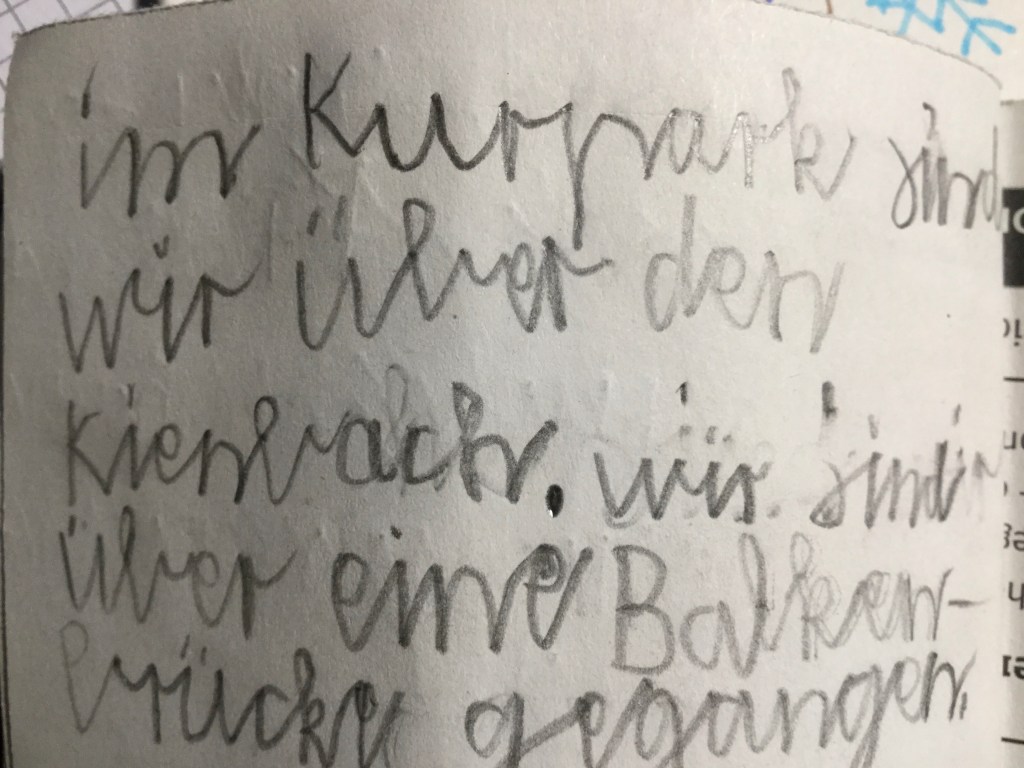 im Kurpark sind
wir über den
Kienbach. wir sind
über eine Balken-
brücke gegangen.